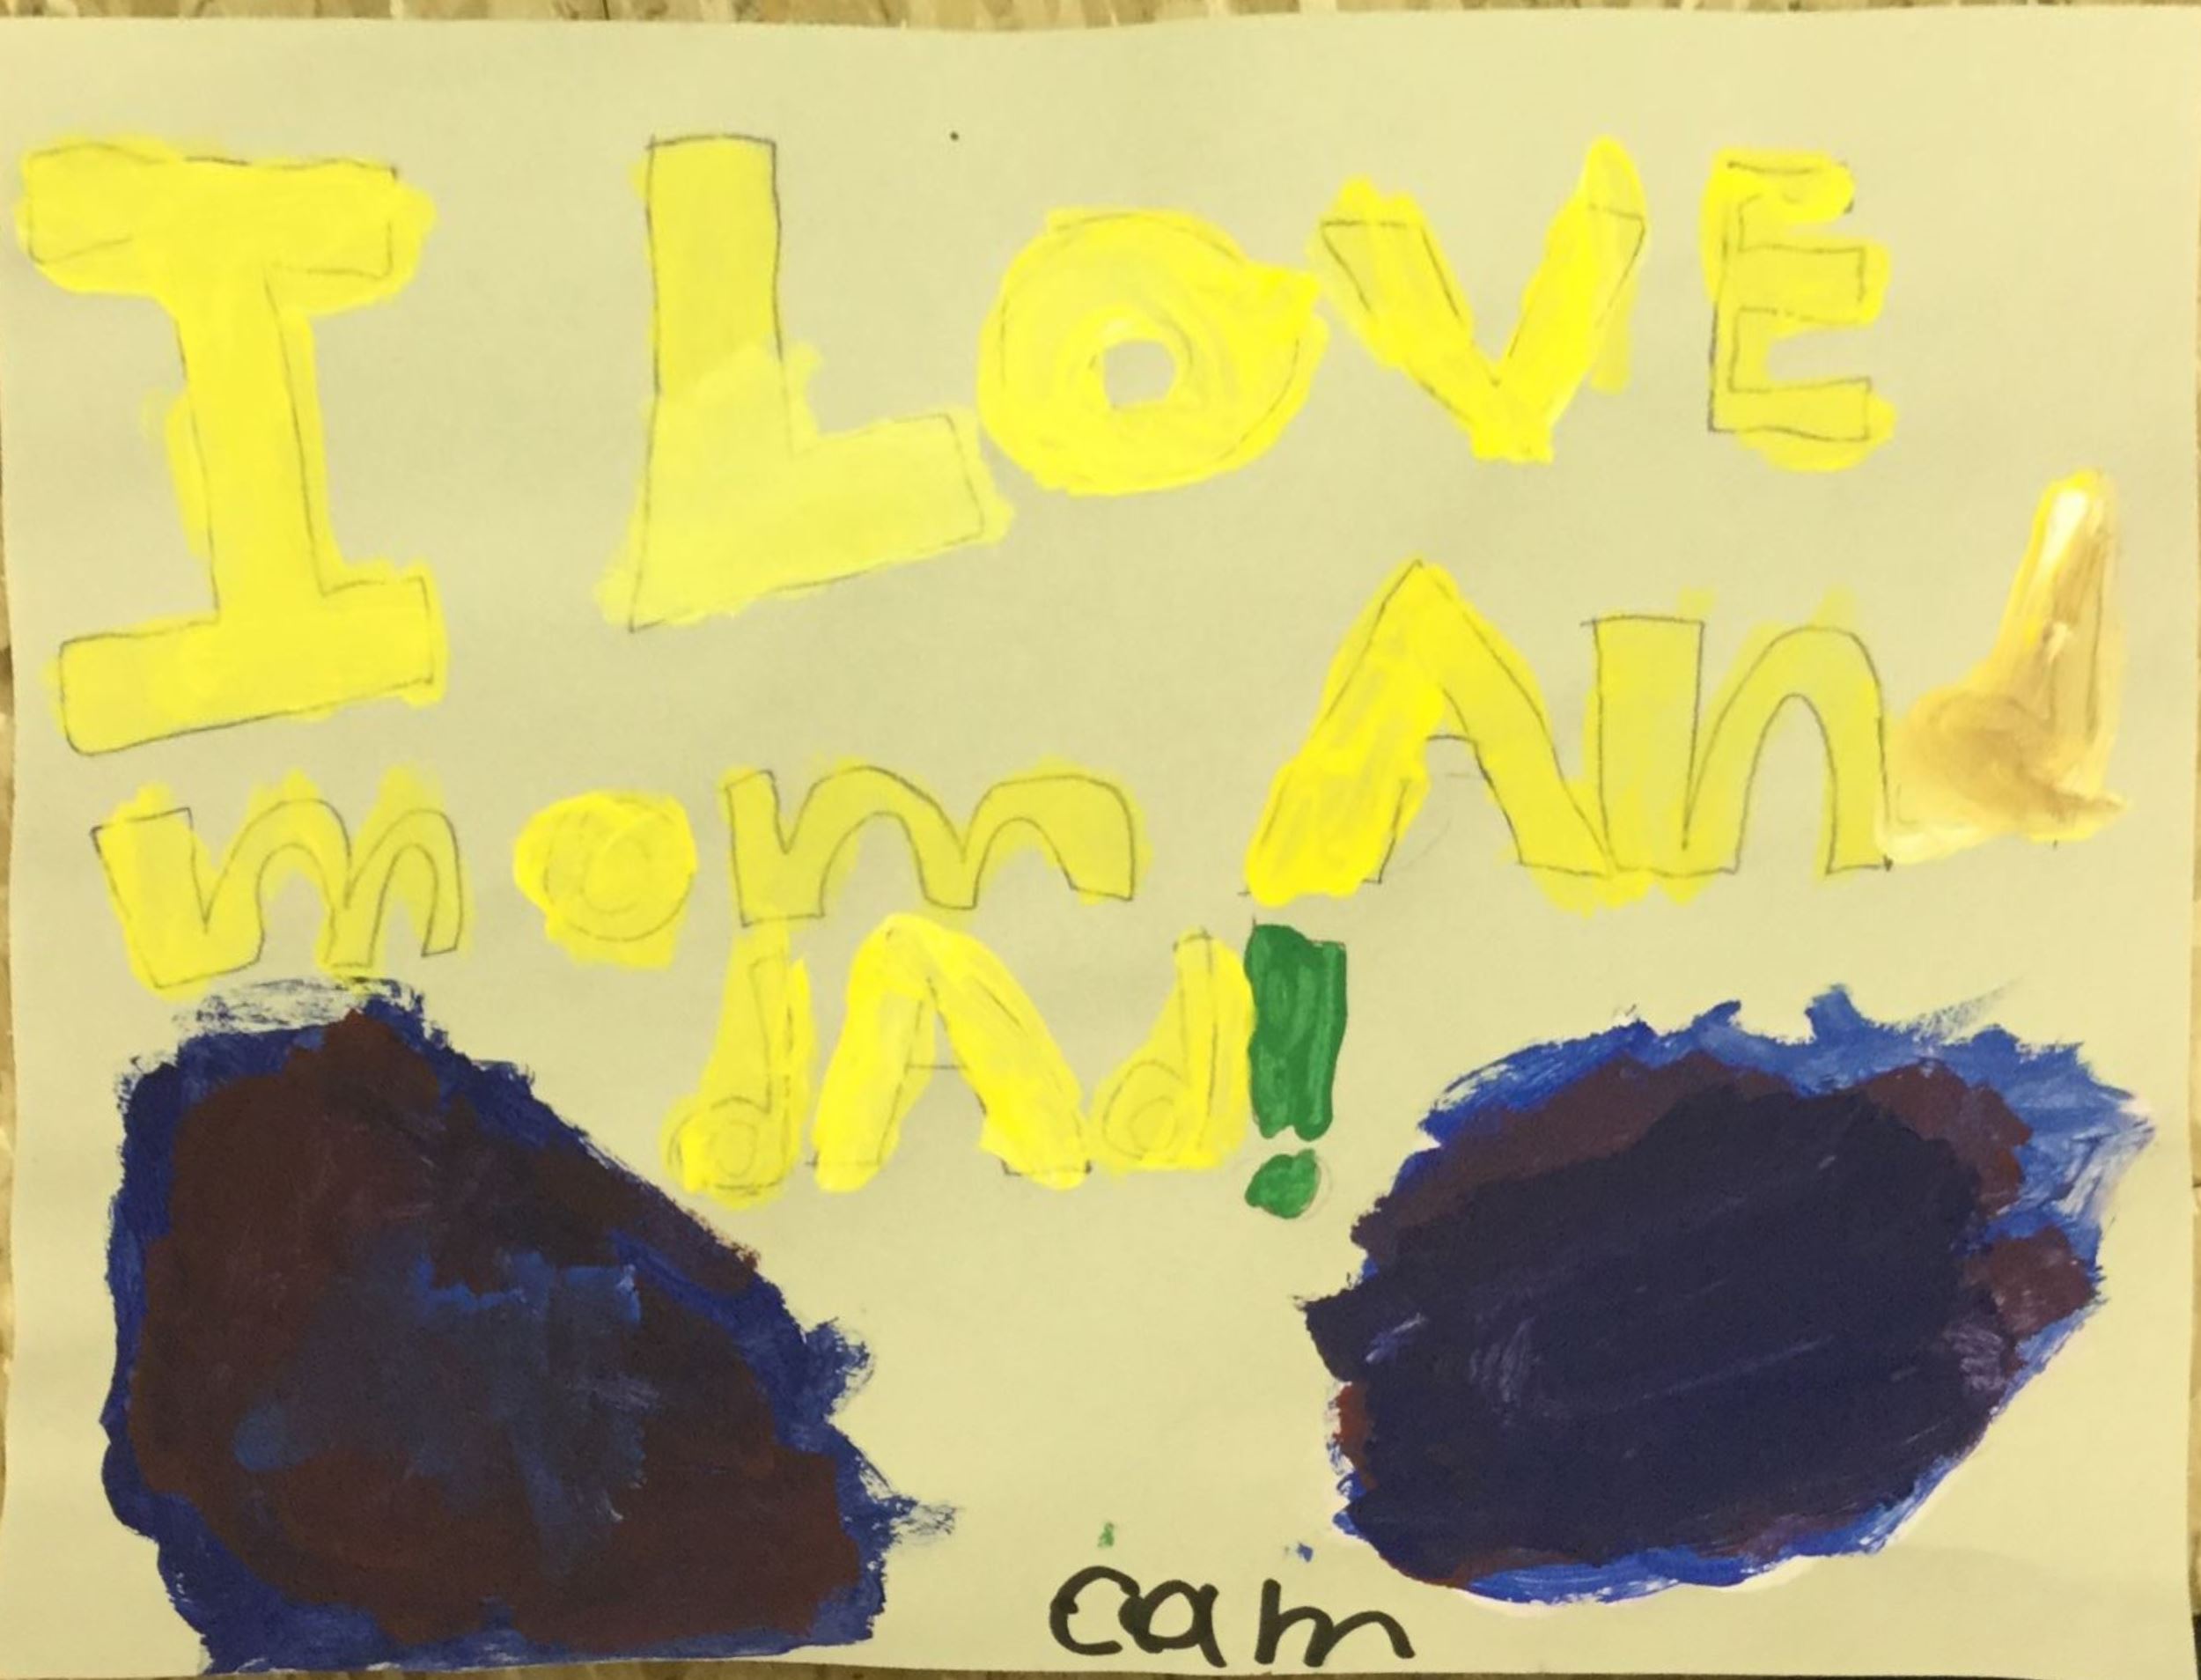 I LOVE
And
mom
dAd!
cam